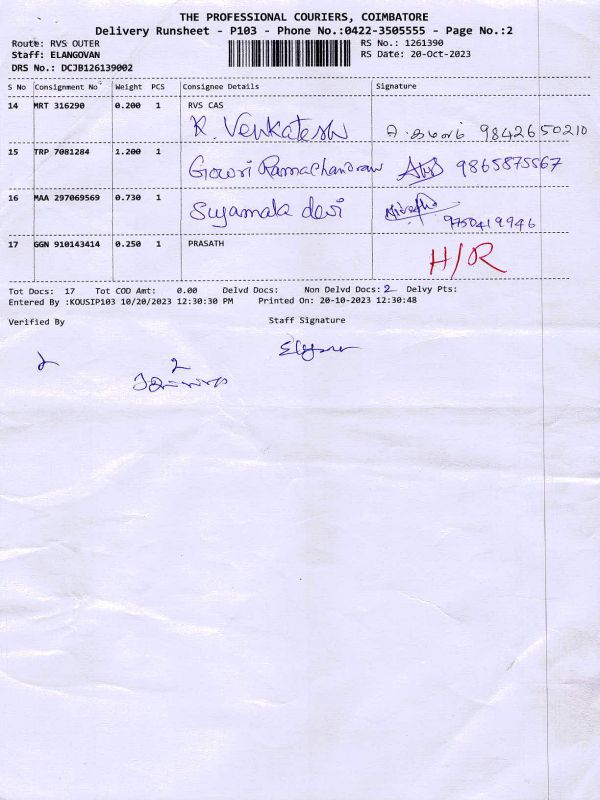 THE PROFESSIONAL COURIERS, COIMBATORE
Delivery Runsheet - P103 - Phone No.:0422-3505555 - Page No.:2
Route: RVS OUTER RS No.: 1261390
Staff: ELANGOVAN RS Date: 20-Oct-2023
DRS No.: DCJB126139002
S No Consignment No Weight PCS Consignee Details Signature
14 MRT 316290 0.200 1 RVS CAS
R. Venkatesh 9842650210
15 TRP 7081284 1.200 1
Gowri Ramachandran 9865875567
16 MAA 297069569 0.730 1
Suyamala devi 9750419946
17 GGN 910143414 0.250 1 PRASATH
H/R
Tot Docs: 17 Tot COD Amt: 0.00 Delvd Docs: Non Delvd Docs: 2 Delvy Pts:
Entered By :KOUSIP103 10/20/2023 12:30:30 PM Printed On: 20-10-2023 12:30:48
Verified By Staff Signature
2